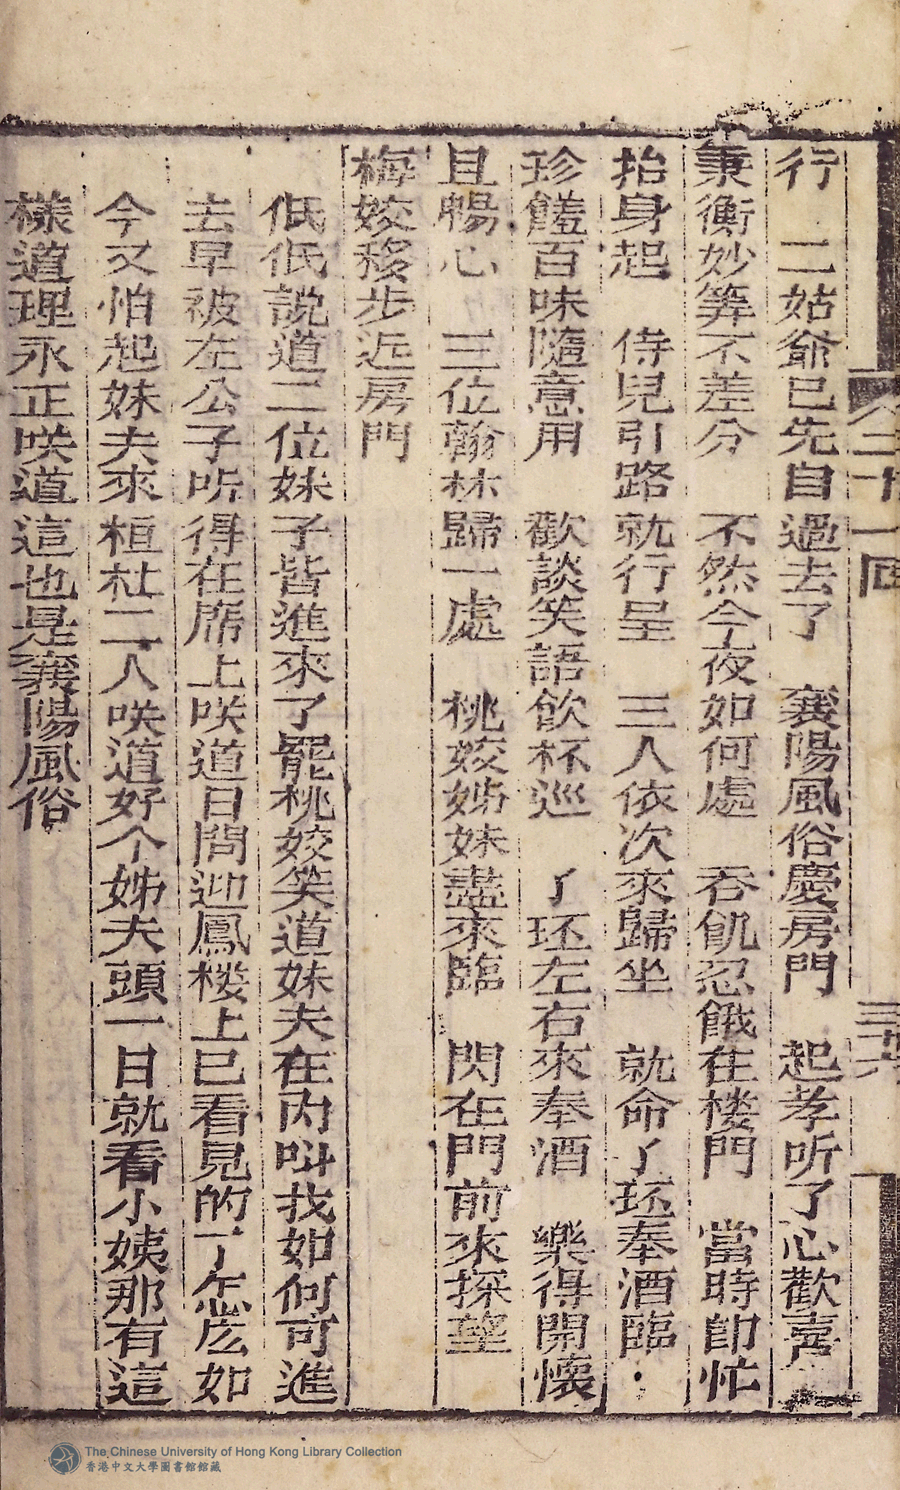 八三十一囘
三十六
行 二姑爺已先自過去了 襄陽風俗慶房門 起孝听了心歡喜
秉衡妙筭不差分 不然今夜如何處 吞飢忍餓在楼門 當時卽忙
抬身起 侍兒引路就行呈 三人依次來歸坐 就命了环奉酒臨
珍饈百味隨意用 歡談笑語飲杯巡 了环左右來奉酒 樂得開懷
且暢心 三位翰林歸一處 桃姣姊妹盡來臨 閃在門前來探望
梅姣移步近房門
低低説道二位妹子皆進來了罷桃姣笑道妹夫在內呌找如何可進
去早被左公子听得在席上咲道日間迎鳳楼上已看見的了怎庅如
今又怕起妹夫來桓杜二人咲道好个姊夫頭一日就看小姨那有這
樣道理永正咲道這也是襄陽風俗
The Chinese University of Hong Kong Library Collection
香港中文大學圖書館館藏